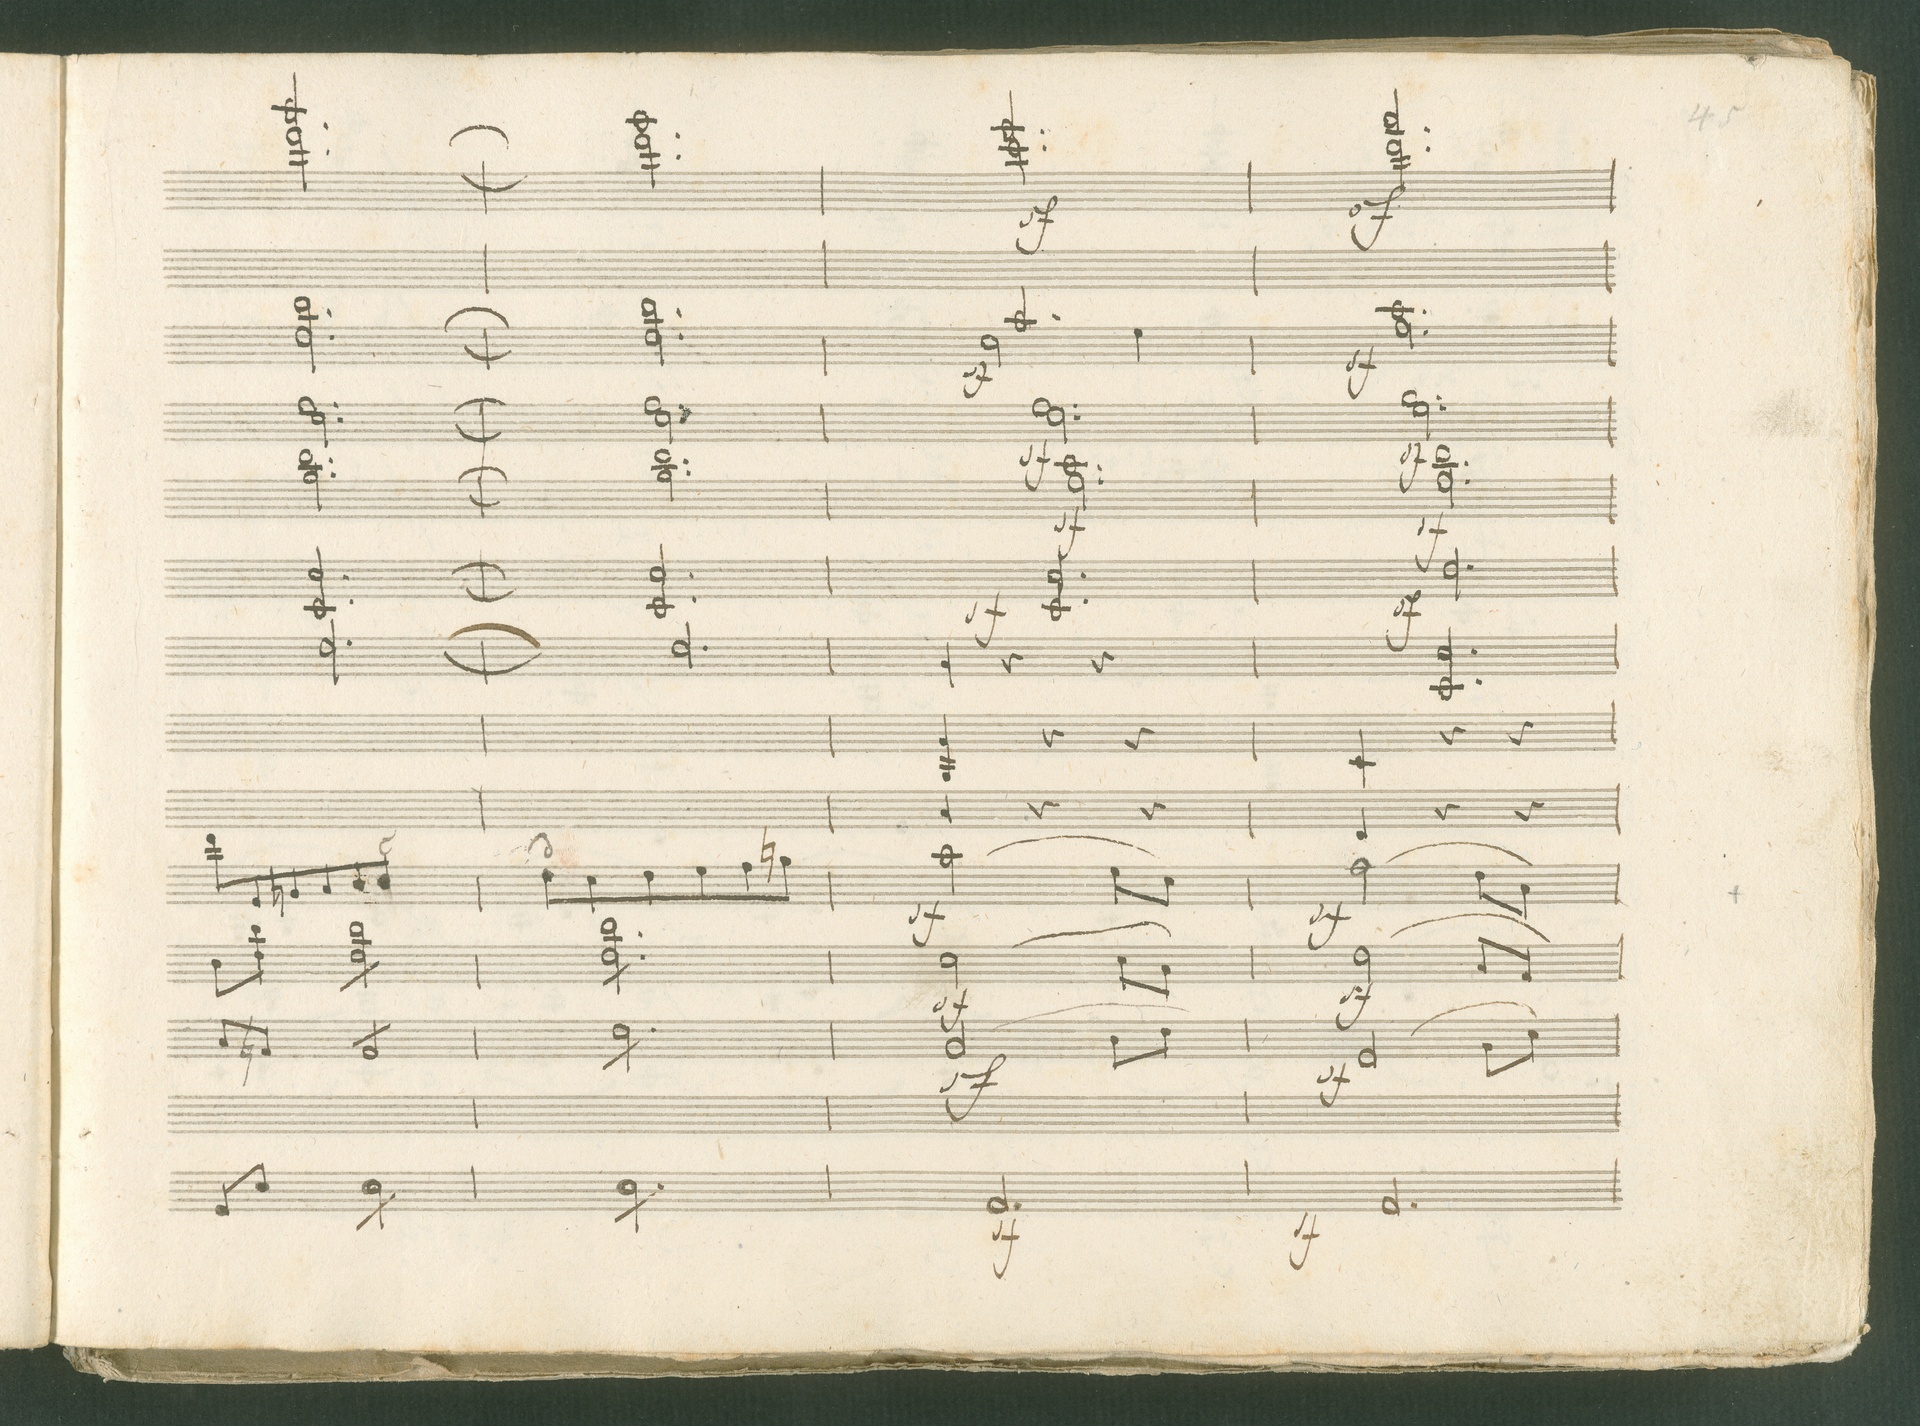 45
sf sf
sf sf
sf sf
sf sf
sf sf
sf sf
sf sf
sf sf
sf sf